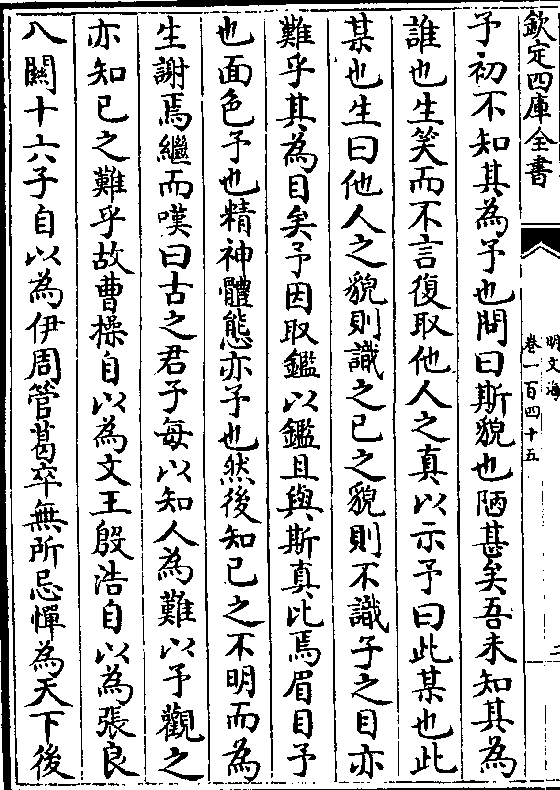 欽定四庫全書
明文海
卷一百四十五
予初不知其為予也問曰斯貌也陋甚矣吾未知其為
誰也生笑而不言復取他人之真以示予曰此某也此
某也生曰他人之貌則識之已之貌則不識子之目亦
難乎其為目矣予因取鑑以鑑且與斯真比焉眉目予
也面色予也精神體態亦予也然後知已之不明而為
生謝焉繼而嘆曰古之君子每以知人為難以予觀之
亦知已之難乎故曹操自以為文王殷浩自以為張良
八關十六子自以為伊周管葛卒無所忌憚為天下後